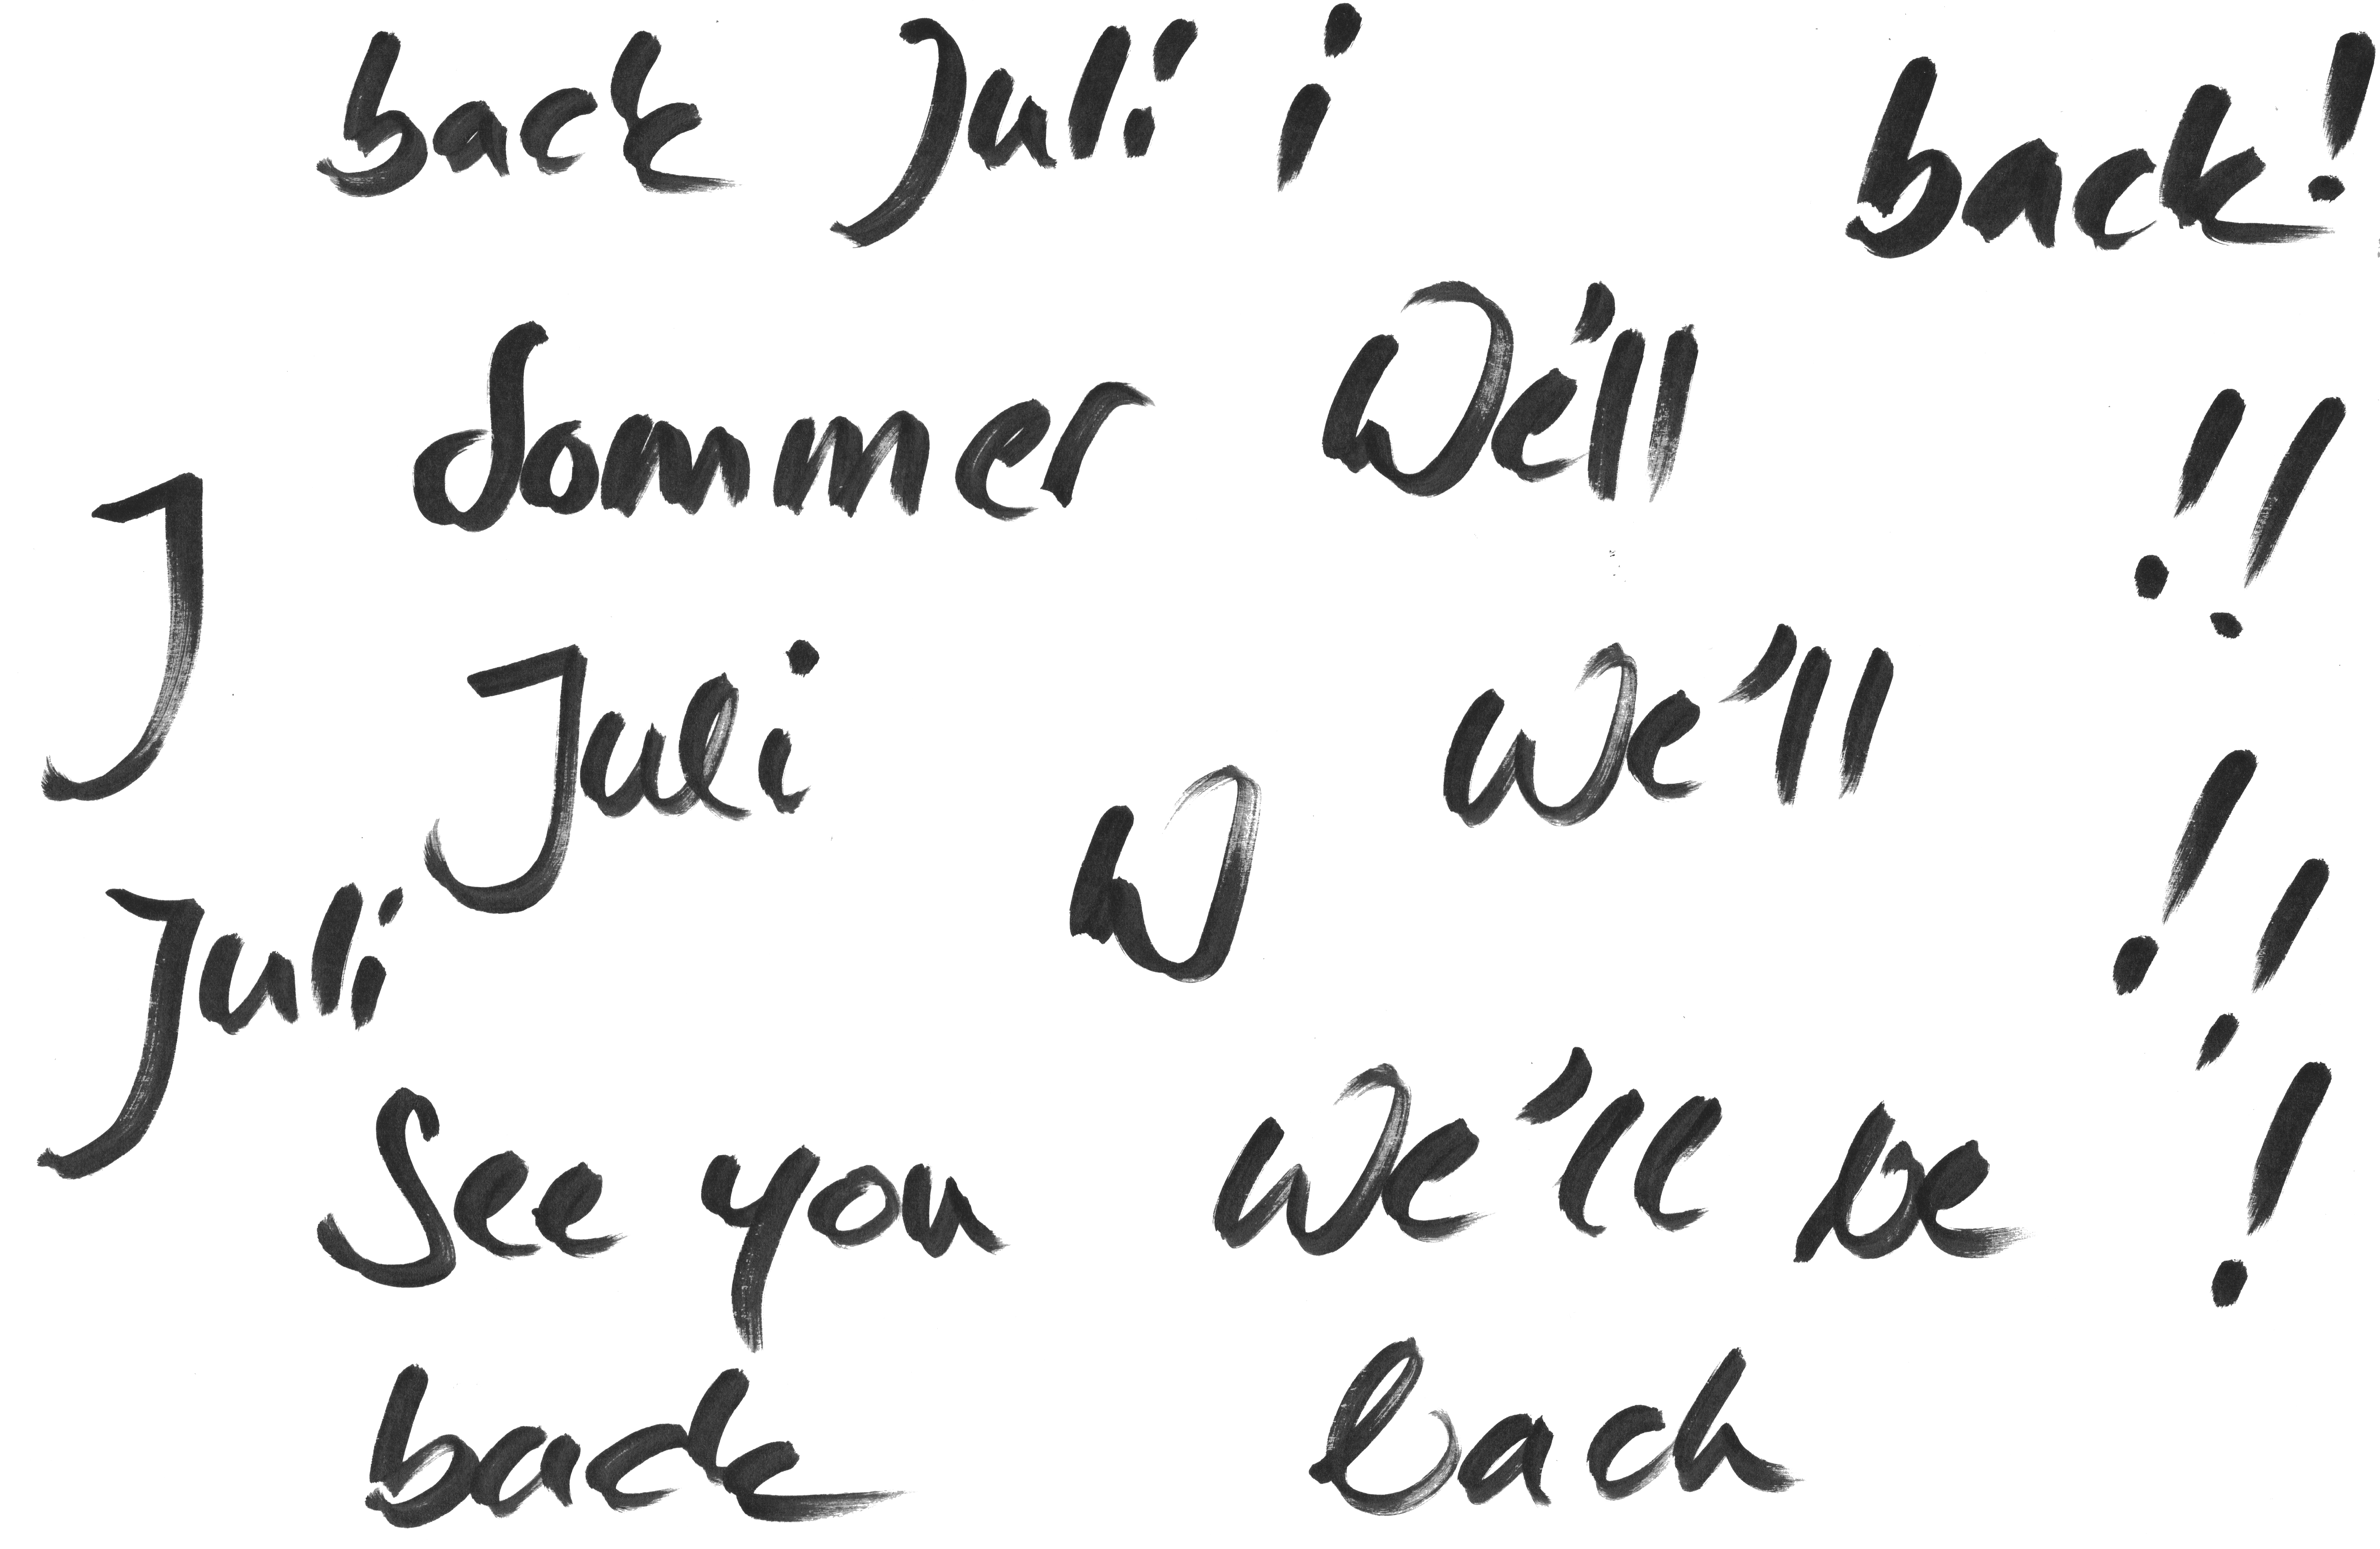 back Juli i back!
Sommer We'll
! !
J
Juli We'll
W
! !
Juli
See you We'll be !
back back